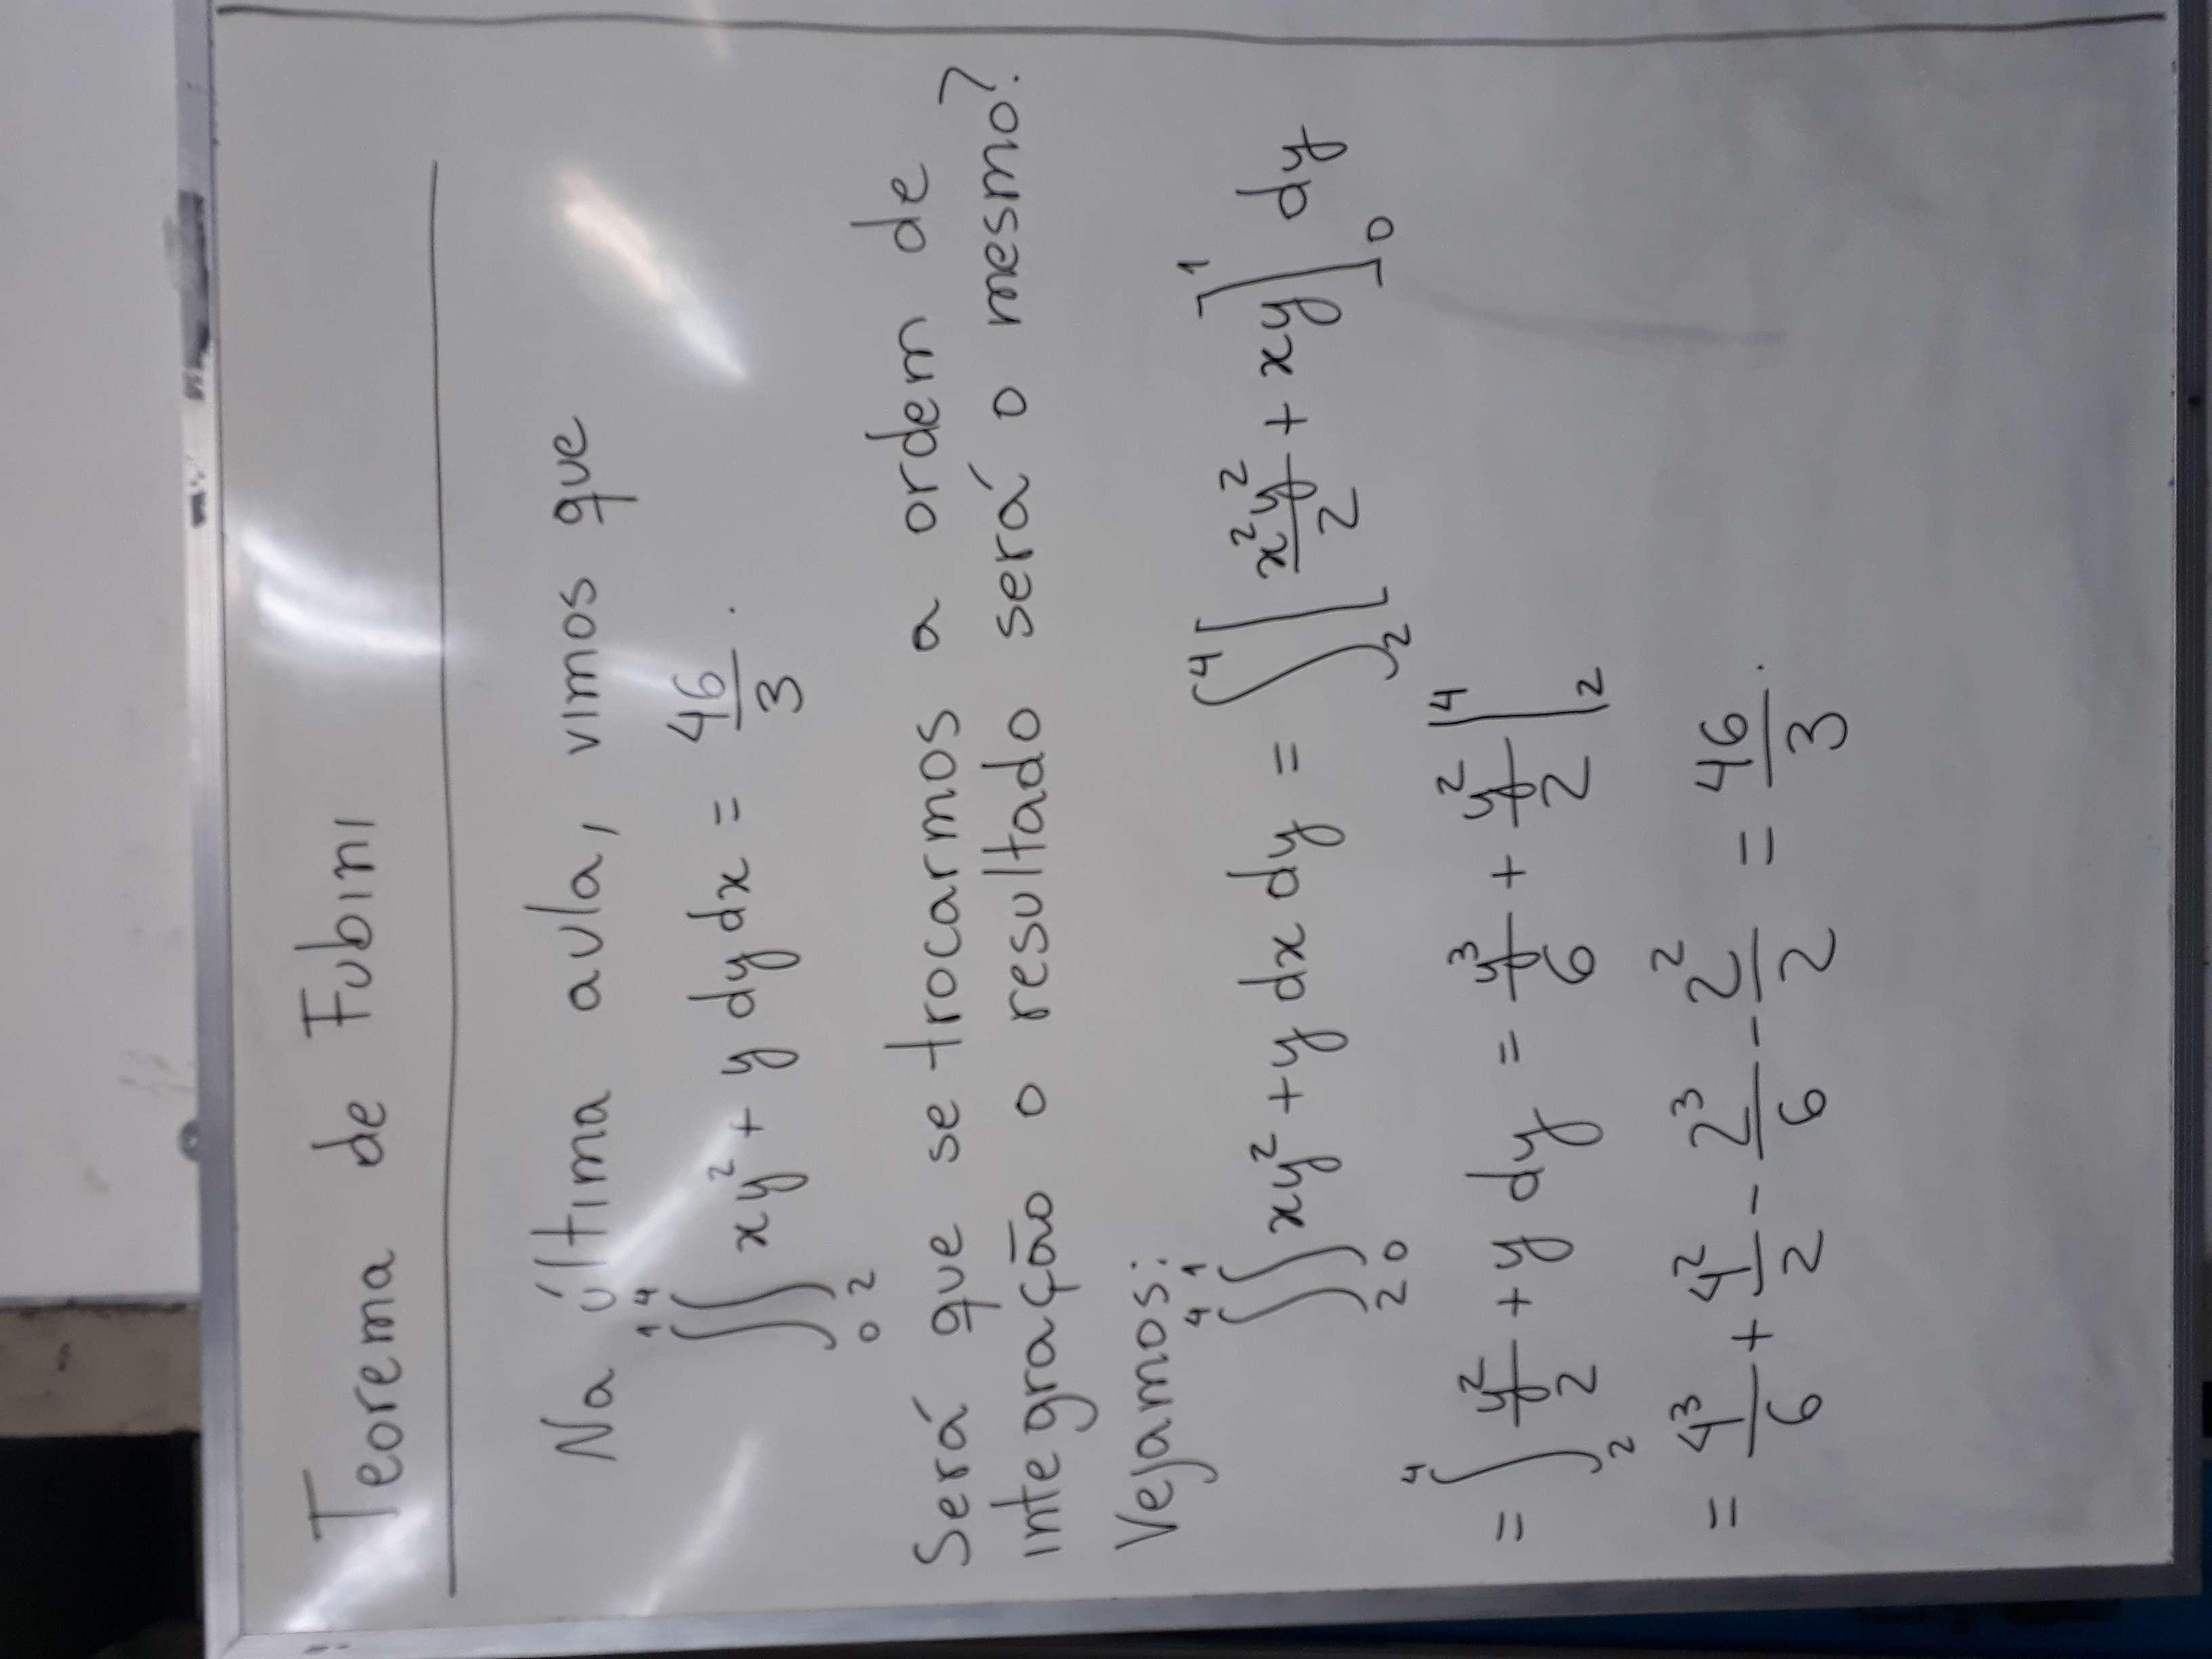 Teorema de Fubini
Na última aula, vimos que
∫₀¹∫₂⁴ xy² + y dy dx = 46/3.
Será que se trocarmos a ordem de
integração o resultado será o mesmo?
Vejamos:
∫₂⁴∫₀¹ xy² + y dx dy = ∫₂⁴ [x²y²/2 + xy]₀¹ dy
= ∫₂⁴ y²/2 + y dy = y³/6 + y²/2 |₂⁴
= 4³/6 + 4²/2 - 2³/6 - 2²/2 = 46/3.